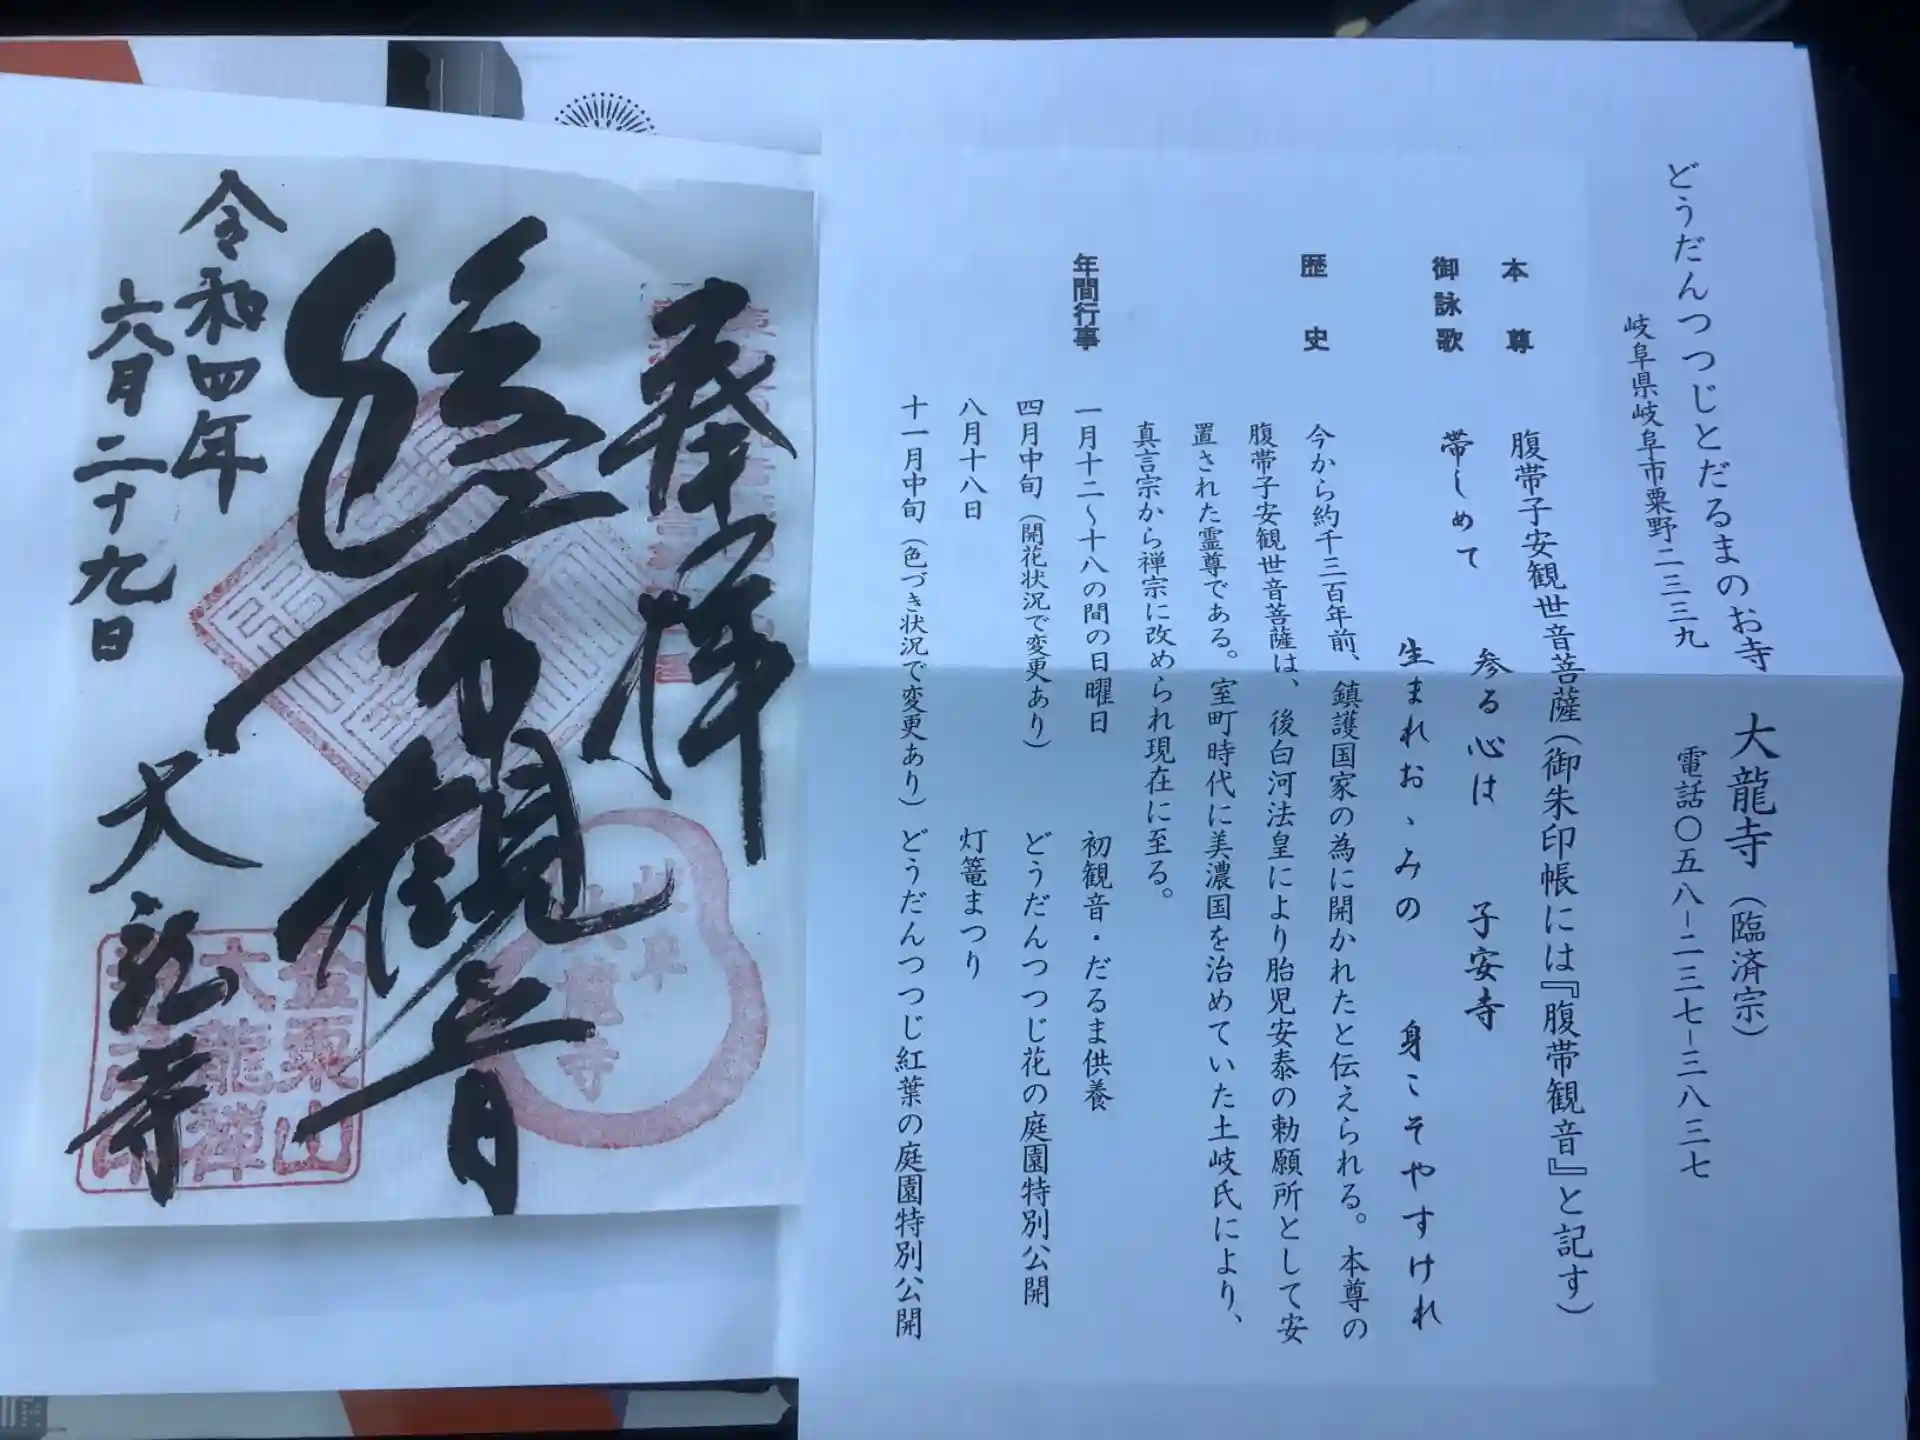 どうだんつつじとだるまのお寺 大龍寺（臨済宗）
岐阜県岐阜市粟野二三三九 電話〇五八－二三七－三八三七
本尊 腹帯子安観世音菩薩（御朱印帳には『腹帯観音』と記す）
御詠歌 帯しめて 参る心は 子安寺
生まれおゝみの 身こそやすけれ
歴史 今から約千三百年前、鎮護国家の為に開かれたと伝えられる。本尊の
腹帯子安観世音菩薩は、後白河法皇により胎児安泰の勅願所として安
置された霊尊である。室町時代に美濃国を治めていた土岐氏により、
真言宗から禅宗に改められ現在に至る。
年間行事 一月十二〜十八の間の日曜日 初観音・だるま供養
四月中旬（開花状況で変更あり） どうだんつつじ花の庭園特別公開
八月十八日 灯篭まつり
十一月中旬（色づき状況で変更あり） どうだんつつじ紅葉の庭園特別公開
奉拝
腹帯観音
令和四年
六月二十九日
大龍寺
岐阜
大龍寺
金粟山
大龍禅